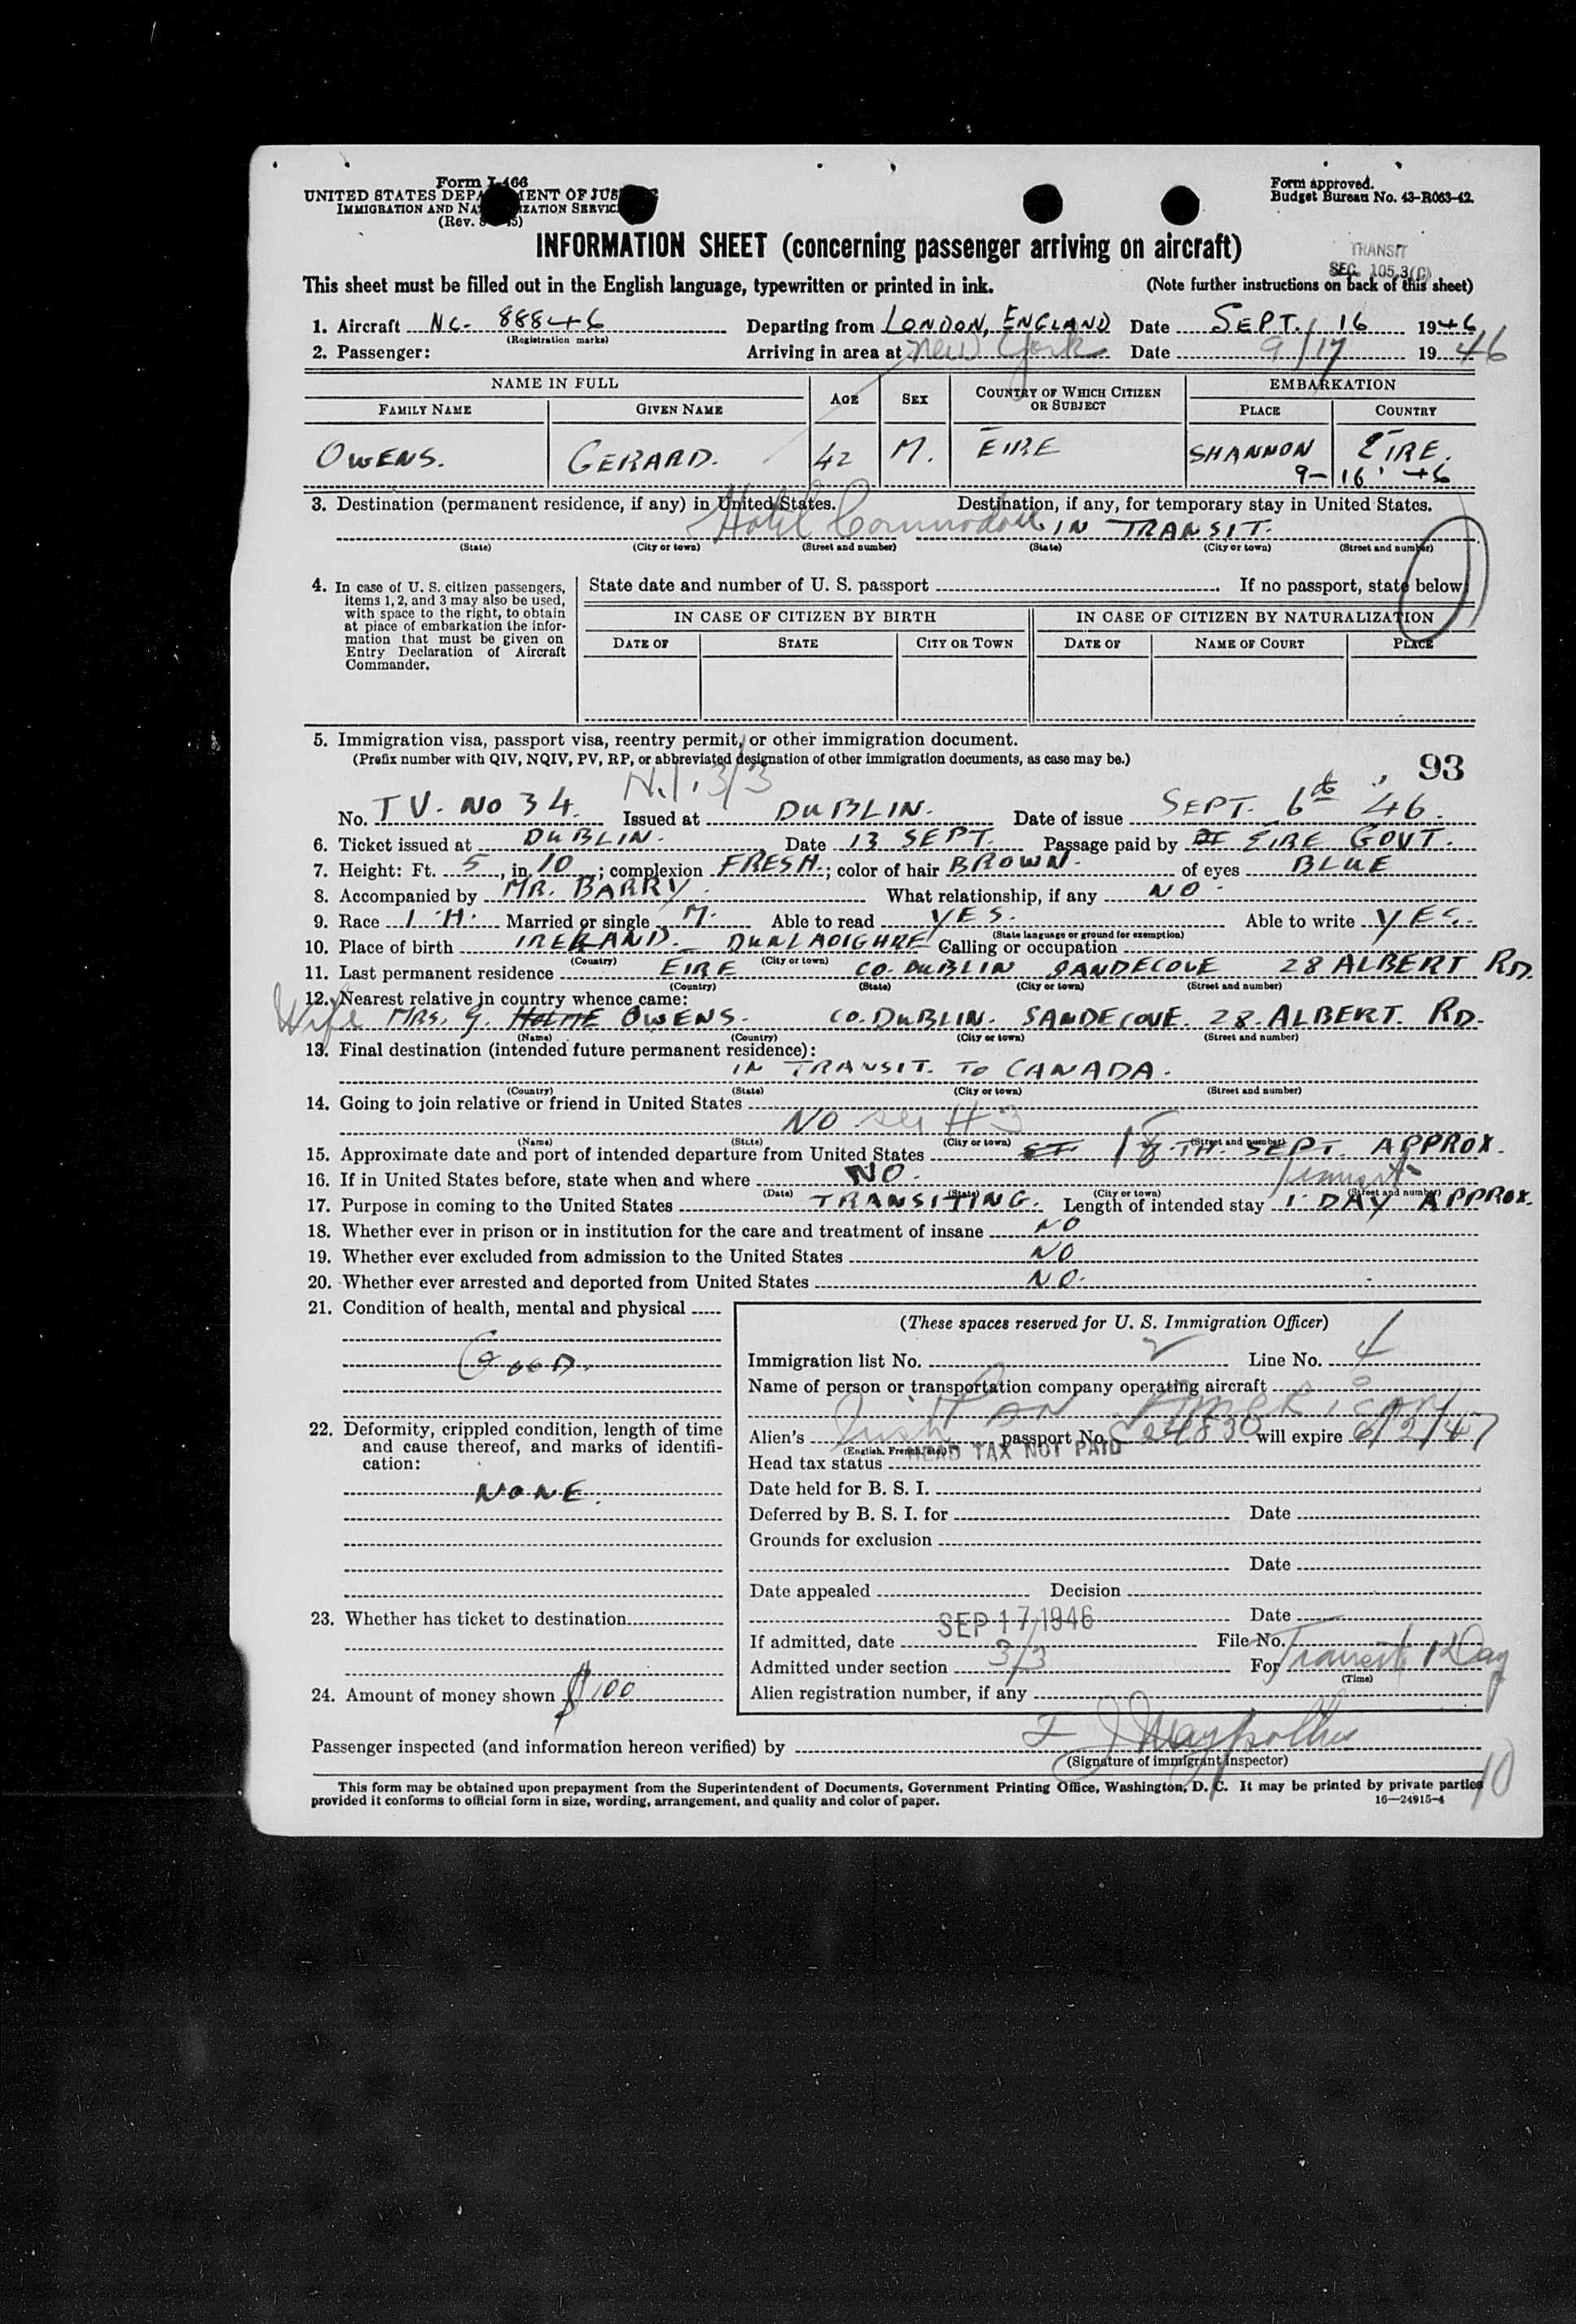 Form I-466
UNITED STATES DEPARTMENT OF JUSTICE
IMMIGRATION AND NATURALIZATION SERVICE
(Rev.
Form approved.
Budget Bureau No. 43-R063-42.
INFORMATION SHEET (concerning passenger arriving on aircraft)
TRANSIT
SEC. 105.3(C)
This sheet must be filled out in the English language, typewritten or printed in ink. (Note further instructions on back of this sheet)
1. Aircraft NC- 88846 Departing from LONDON, ENGLAND Date SEPT. 16 1946
(Registration marks)
2. Passenger: Arriving in area at New York Date 9/17 1946
NAME IN FULL AGE SEX COUNTRY OF WHICH CITIZEN OR SUBJECT EMBARKATION
FAMILY NAME GIVEN NAME PLACE COUNTRY
OWENS. GERARD. 42 M. EIRE SHANNON EIRE.
9-16 '46
3. Destination (permanent residence, if any) in United States. Destination, if any, for temporary stay in United States.
Hotel Commodore IN TRANSIT.
(State) (City or town) (Street and number) (State) (City or town) (Street and number)
4. In case of U. S. citizen passengers, items 1, 2, and 3 may also be used, with space to the right, to obtain at place of embarkation the information that must be given on Entry Declaration of Aircraft Commander.
State date and number of U. S. passport If no passport, state below:
IN CASE OF CITIZEN BY BIRTH IN CASE OF CITIZEN BY NATURALIZATION
DATE OF STATE CITY OR TOWN DATE OF NAME OF COURT PLACE
5. Immigration visa, passport visa, reentry permit, or other immigration document.
(Prefix number with QIV, NQIV, PV, RP, or abbreviated designation of other immigration documents, as case may be.)
93
3/3
No. T V. No 34. Issued at DUBLIN. Date of issue SEPT. 6th 46.
6. Ticket issued at DUBLIN. Date 13 SEPT. Passage paid by EIRE GOVT.
7. Height: Ft. 5, in. 10; complexion FRESH.; color of hair BROWN. of eyes BLUE
8. Accompanied by MR. BARRY. What relationship, if any NO.
9. Race Married or single M. Able to read YES. Able to write YES.
(State language or ground for exemption)
10. Place of birth IRELAND. DUNLAOIGHRE Calling or occupation
(Country) (City or town)
11. Last permanent residence EIRE CO. DUBLIN SANDECOVE 28 ALBERT RD.
(Country) (State) (City or town) (Street and number)
12. Nearest relative in country whence came:
Wife MRS. G. OWENS. CO. DUBLIN. SANDECOVE. 28. ALBERT. RD.
(Name) (Country) (City or town) (Street and number)
13. Final destination (intended future permanent residence):
IN TRANSIT. TO CANADA.
(Country) (State) (City or town) (Street and number)
14. Going to join relative or friend in United States
NO see #3
(Name) (State) (City or town) (Street and number)
15. Approximate date and port of intended departure from United States 18TH. SEPT. APPROX.
16. If in United States before, state when and where NO.
(Date) (State) (City or town) (Street and number)
transit
17. Purpose in coming to the United States TRANSITING. Length of intended stay 1 DAY APPROX.
18. Whether ever in prison or in institution for the care and treatment of insane NO
19. Whether ever excluded from admission to the United States NO
20. Whether ever arrested and deported from United States NO.
21. Condition of health, mental and physical
GOOD.
22. Deformity, crippled condition, length of time and cause thereof, and marks of identification:
NONE.
23. Whether has ticket to destination
24. Amount of money shown $100
(These spaces reserved for U. S. Immigration Officer)
Immigration list No. 2 Line No. 4
Name of person or transportation company operating aircraft
PAN AMERICAN
Alien's Irish passport No. C 24830 will expire 6/2/47
(English, French, etc.)
Head tax status HEAD TAX NOT PAID
Date held for B. S. I.
Deferred by B. S. I. for Date
Grounds for exclusion
Date
Date appealed Decision
Date
If admitted, date SEP 17 1946 File No.
Admitted under section 3/3 For Transit 1 Day
(Time)
Alien registration number, if any
Passenger inspected (and information hereon verified) by
(Signature of immigrant inspector)
10
This form may be obtained upon prepayment from the Superintendent of Documents, Government Printing Office, Washington, D. C. It may be printed by private parties
provided it conforms to official form in size, wording, arrangement, and quality and color of paper. 16—24915-4